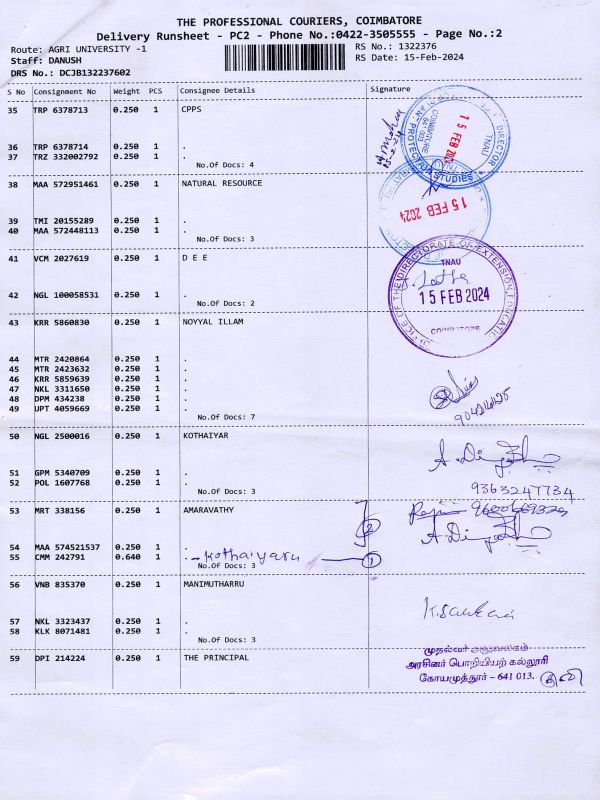 THE PROFESSIONAL COURIERS, COIMBATORE
Delivery Runsheet - PC2 - Phone No.:0422-3505555 - Page No.:2
Route: AGRI UNIVERSITY -1
RS No.: 1322376
Staff: DANUSH
RS Date: 15-Feb-2024
DRS No.: DCJB132237602
S No Consignment No Weight PCS Consignee Details Signature
35 TRP 6378713 0.250 1 CPPS
36 TRP 6378714 0.250 1 .
37 TRZ 332002792 0.250 1 .
No.Of Docs: 4
DIRECTOR
TNAU
COIMBATORE
15 FEB 202
PROTECTION STUDIES
38 MAA 572951461 0.250 1 NATURAL RESOURCE
15 FEB 2024
39 TMI 20155289 0.250 1 .
40 MAA 572448113 0.250 1 .
No.Of Docs: 3
41 VCM 2027619 0.250 1 D E E
OFFICE OF THE DIRECTORATE OF EXTENSION EDUCATION
TNAU
15 FEB 2024
COIMBATORE
42 NGL 100058531 0.250 1 .
No.Of Docs: 2
43 KRR 5860830 0.250 1 NOYYAL ILLAM
44 MTR 2420864 0.250 1 .
45 MTR 2423632 0.250 1 .
46 KRR 5859639 0.250 1 .
47 NKL 3311650 0.250 1 .
48 DPM 434238 0.250 1 .
49 UPT 4059669 0.250 1 .
No.Of Docs: 7
50 NGL 2500016 0.250 1 KOTHAIYAR
51 GPM 5340709 0.250 1 .
52 POL 1607768 0.250 1 .
No.Of Docs: 3
9363247734
53 MRT 338156 0.250 1 AMARAVATHY
2
54 MAA 574521537 0.250 1 .
55 CMM 242791 0.640 1 . - Kothaiyaru 1
No.Of Docs: 3
56 VNB 835370 0.250 1 MANIMUTHARRU
K. Sankari
57 NKL 3323437 0.250 1 .
58 KLK 8071481 0.250 1 .
No.Of Docs: 3
59 DPI 214224 0.250 1 THE PRINCIPAL
முதல்வர் அலுவலகம்
அரசினர் பொறியியற் கல்லூரி
கோயமுத்தூர் - 641 013.